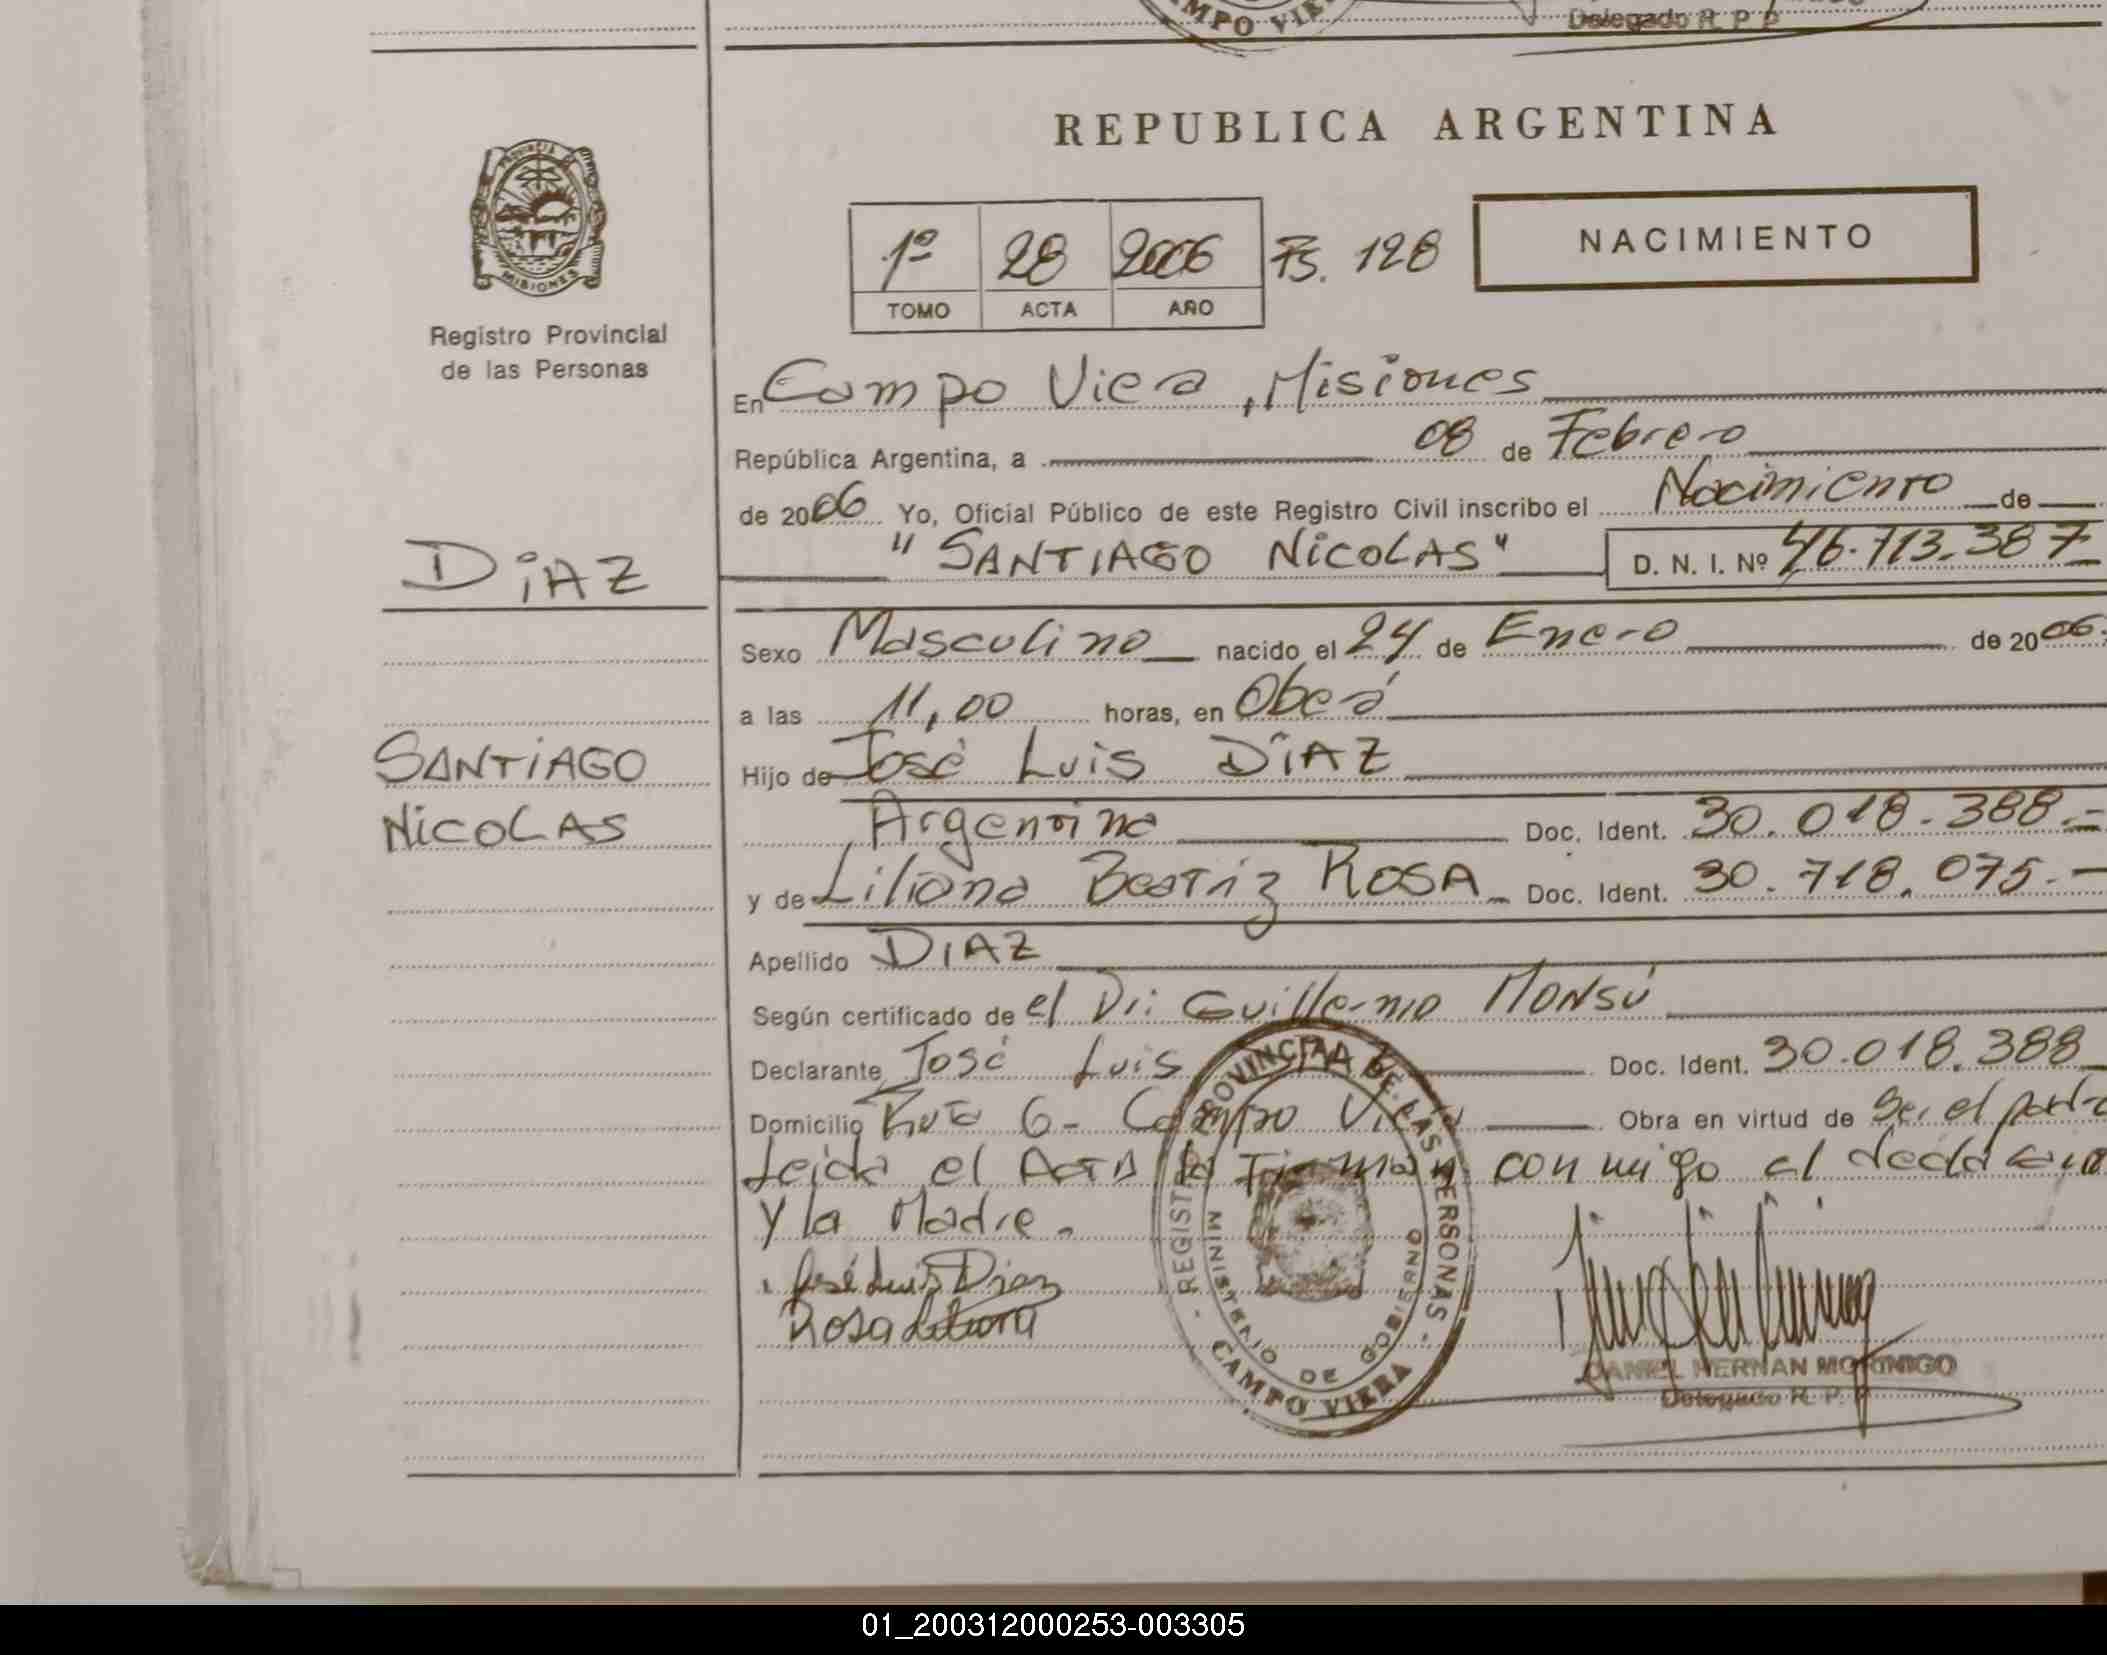 MPO VIE
Delegado R. P. P.
REPUBLICA ARGENTINA
PROVINCIA D
MISIONES
Registro Provincial
de las Personas
1º 28 2006 Fs. 128
TOMO ACTA AÑO
NACIMIENTO
En Campo Viera, Misiones
República Argentina, a 08 de Febrero
de 2006 Yo, Oficial Público de este Registro Civil inscribo el Nacimiento de
"SANTIAGO NICOLAS" D. N. I. Nº 46.713.387
DiAZ
Sexo Masculino nacido el 24 de Enero de 2006
a las 11,00 horas, en Oberá
SANTIAGO
NICOLAS
Hijo de José Luis DÍAZ
Argentina Doc. Ident. 30.018.388.-
y de Liliana Beatriz ROSA Doc. Ident. 30.718.075.-
Apellido DIAZ
Según certificado de el Dr: Guillermo MONSÚ
Declarante José Luis Doc. Ident. 30.018.388
Domicilio Ruta 6- Campo Viera Obra en virtud de Ser el padre
Leida el Acta la Firman conmigo el declarante
y la Madre.
José Luis Diaz
Rosa Liliana
REGISTRO PROVINCIAL DE LAS PERSONAS
MINISTERIO DE GOBIERNO
CAMPO VIERA
DANIEL HERNAN MORINIGO
Delegado R. P. P.
01_200312000253-003305